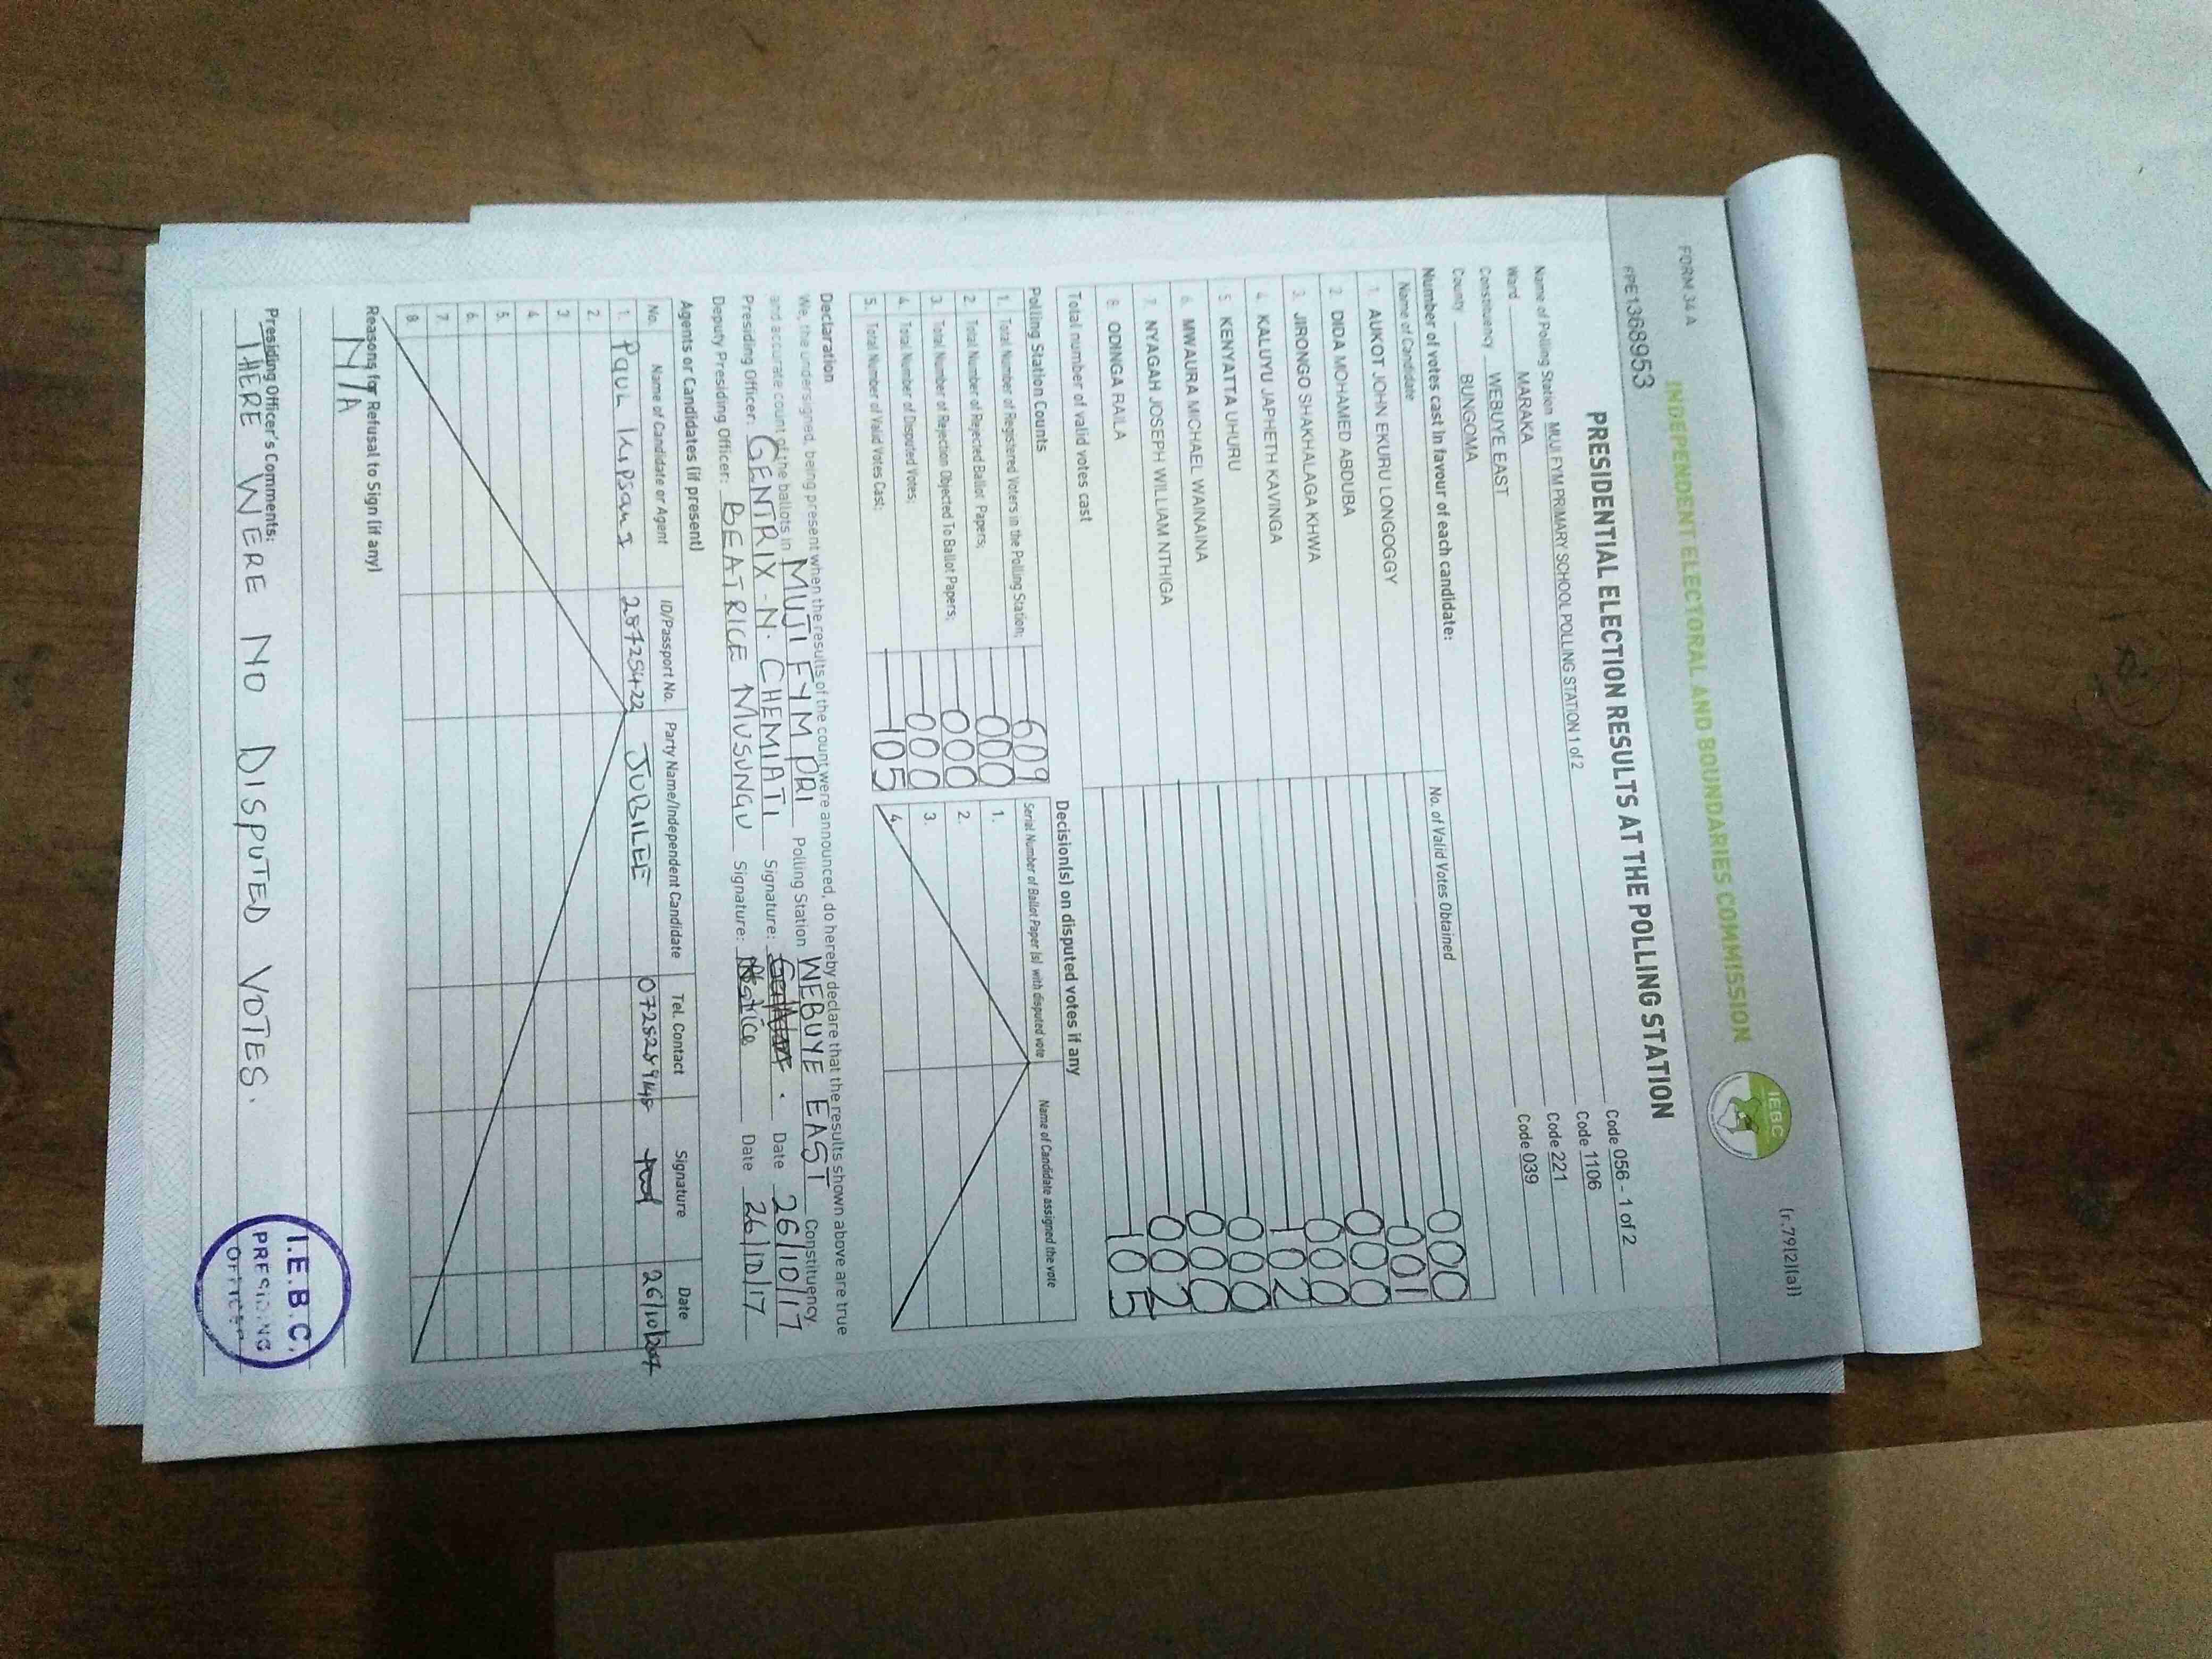 FORM 34 A
(r.79(2)(a))
INDEPENDENT ELECTORAL AND BOUNDARIES COMMISSION
IEBC
PPE1368953
PRESIDENTIAL ELECTION RESULTS AT THE POLLING STATION
Name of Polling Station MUJI FYM PRIMARY SCHOOL POLLING STATION 1 of 2 Code 056 - 1 of 2
Ward MARAKA Code 1106
Constituency WEBUYE EAST Code 221
County BUNGOMA Code 039
Number of votes cast in favour of each candidate:
Name of Candidate No. of Valid Votes Obtained
1. AUKOT JOHN EKURU LONGOGGY 000
2. DIDA MOHAMED ABDUBA 001
3. JIRONGO SHAKHALAGA KHWA 000
4. KALUYU JAPHETH KAVINGA 000
5. KENYATTA UHURU 102
6. MWAURA MICHAEL WAINAINA 000
7. NYAGAH JOSEPH WILLIAM NTHIGA 000
8. ODINGA RAILA 002
Total number of valid votes cast 105
Polling Station Counts
1. Total Number of Registered Voters in the Polling Station; 609
2. Total Number of Rejected Ballot Papers; 000
3. Total Number of Rejection Objected To Ballot Papers; 000
4. Total Number of Disputed Votes; 000
5. Total Number of Valid Votes Cast; 105
Decision(s) on disputed votes if any
Serial Number of Ballot Paper (s) with disputed vote Name of Candidate assigned the vote
1.
2.
3.
4.
Declaration
We, the undersigned, being present when the results of the count were announced, do hereby declare that the results shown above are true
and accurate count of the ballots in MUJI FYM PRI Polling Station WEBUYE EAST Constituency.
Presiding Officer: GENTRIX-N. CHEMIATI Signature: Date 26/10/17
Deputy Presiding Officer: BEATRICE MUSUNGU Signature: Date 26/10/17
Agents or Candidates (if present)
No. Name of Candidate or Agent ID/Passport No. Party Name/Independent Candidate Tel. Contact Signature Date
1. Paul Kipsang JUBILEE 26/10/2017
2.
3.
4.
5.
6.
7.
8.
Reasons for Refusal to Sign (if any)
N/A
Presiding Officer's Comments:
THERE WERE NO DISPUTED VOTES.
I.E.B.C.
PRESIDING
OFFICER